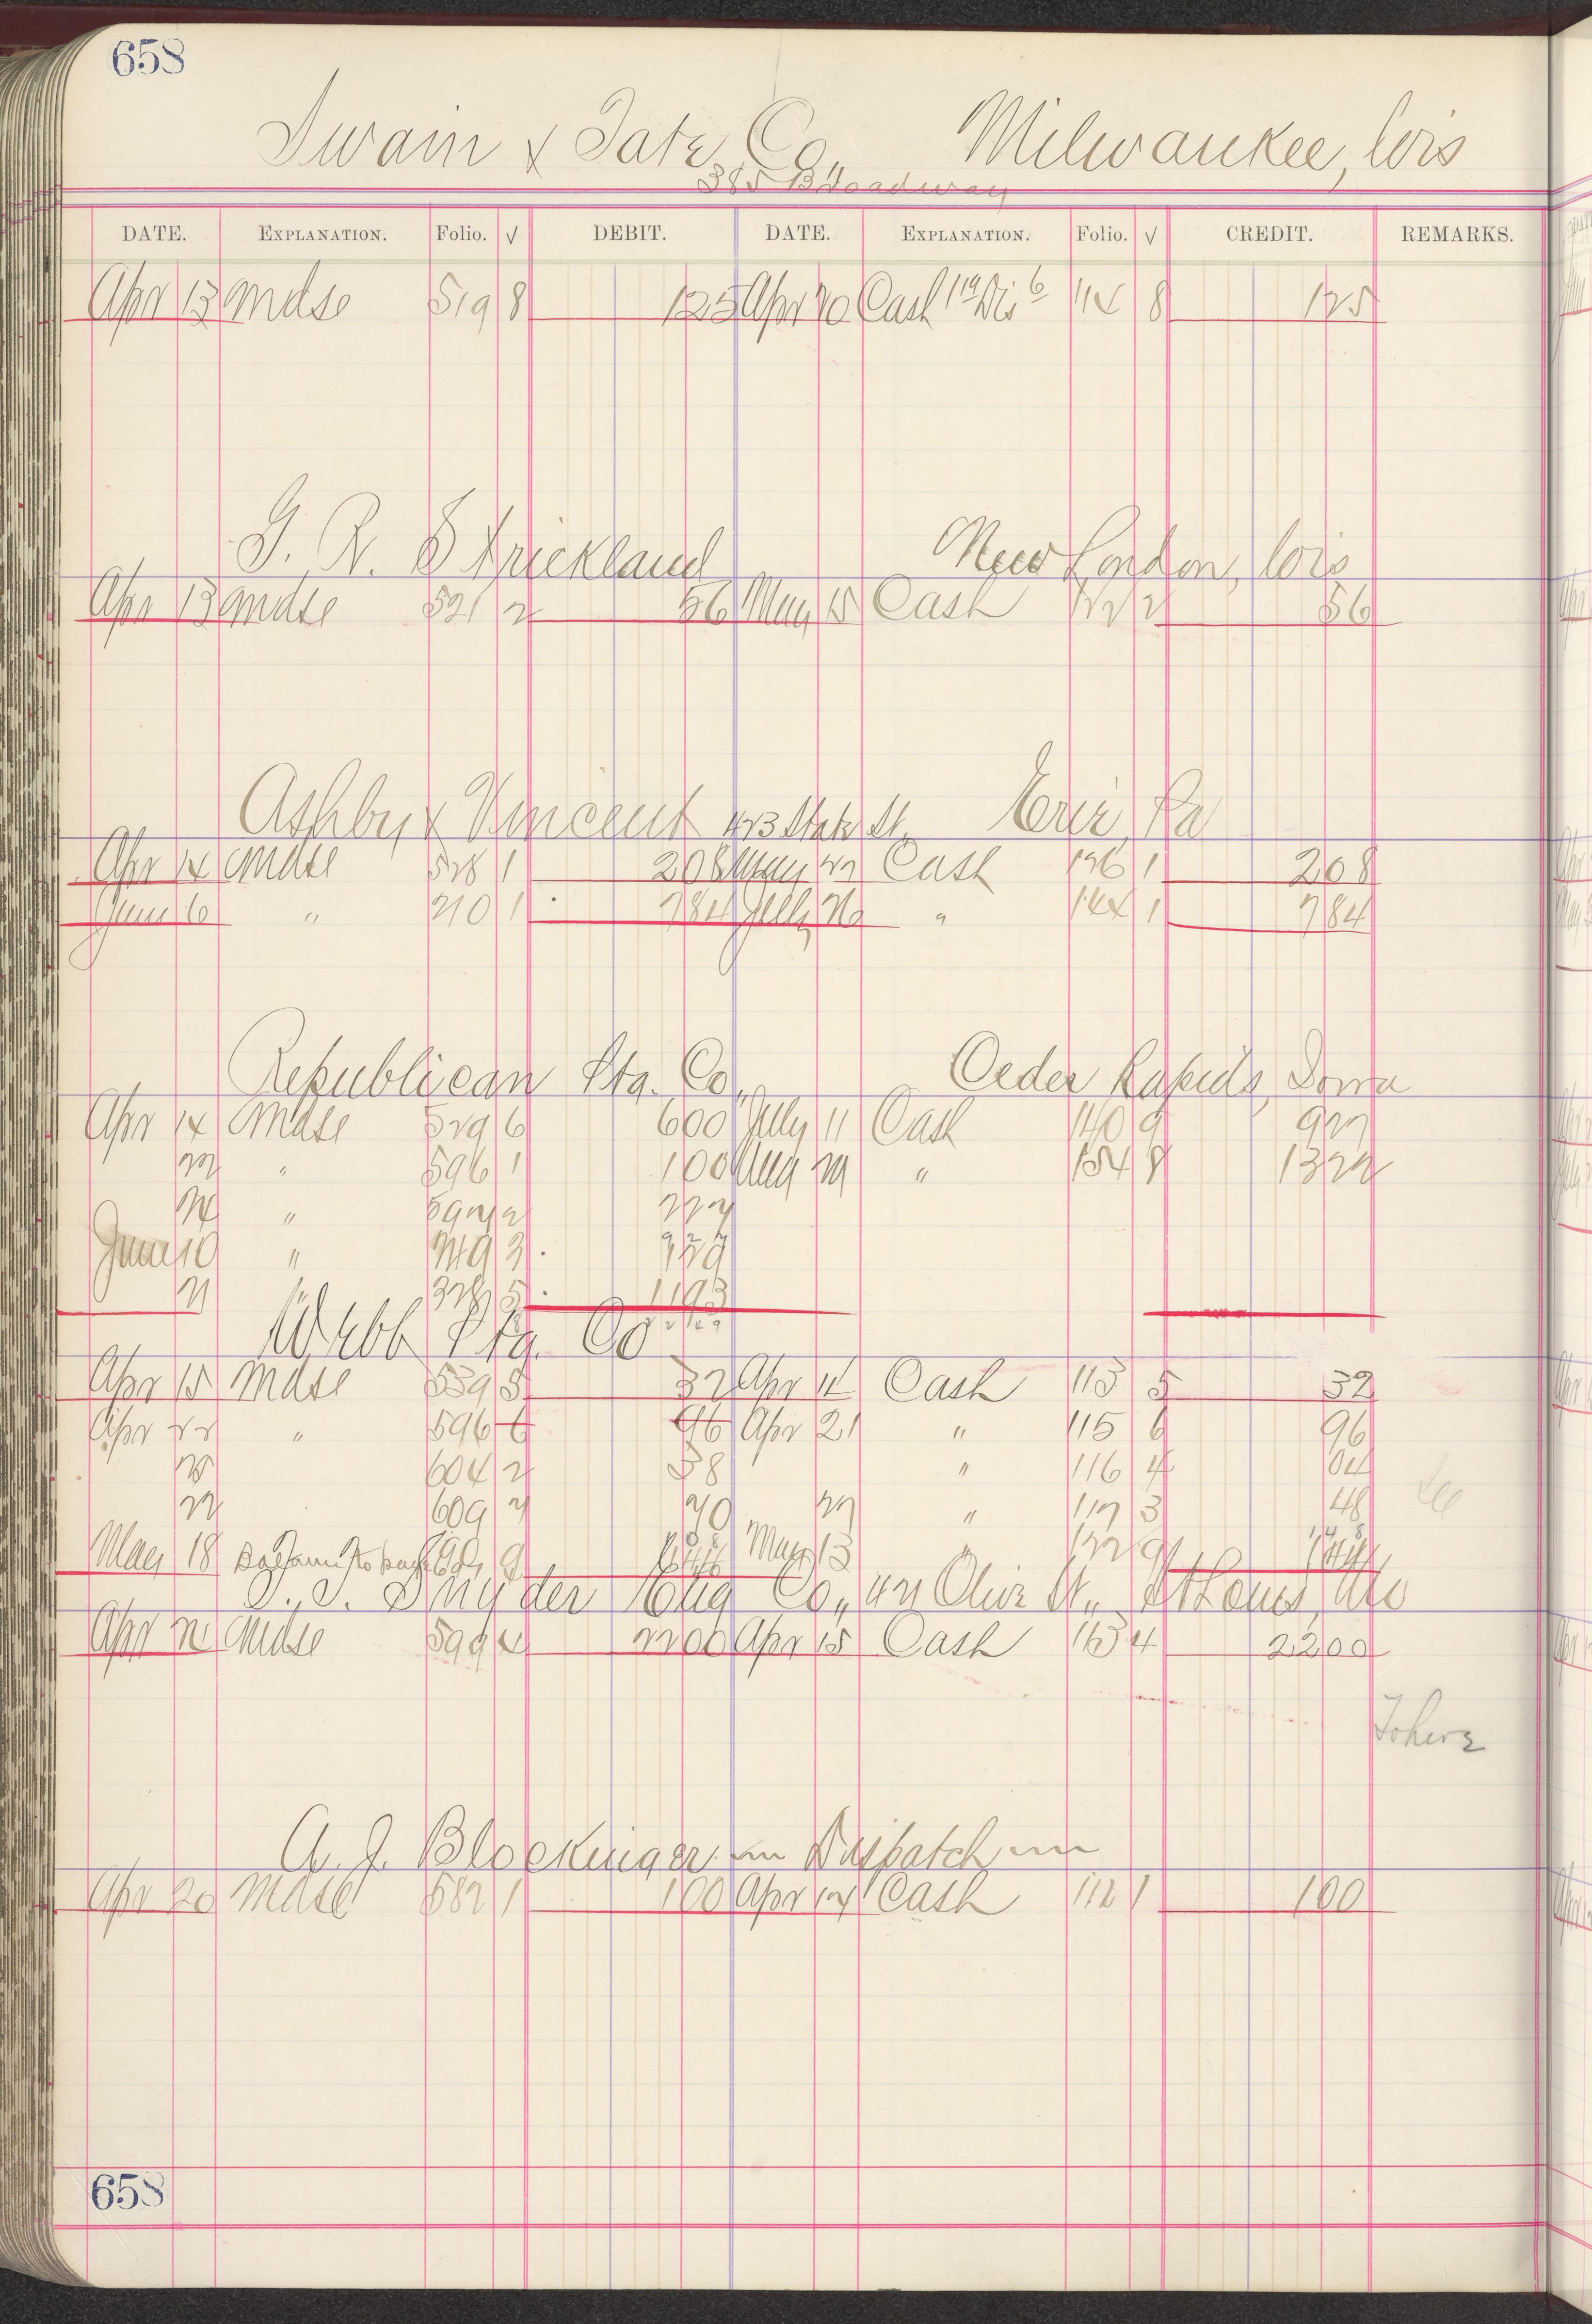 658
Swain & Tate Co. Milwaukee, Wis
385 Broadway
DATE. EXPLANATION. Folio. √ DEBIT. DATE. EXPLANATION. Folio. √ CREDIT. REMARKS.
Apr 13 Mdse 519 8 1 25 Apr 20 Cash 1 19 Dis 6 114 8 1 25
G. R. Strickland New London, Wis
Apr 13 Mdse 521 2 56 May 15 Cash 122 2 56
Ashby & Vincent 423 State St. Erie, Pa
Apr 14 Mdse 528 1 2 08 May 27 Cash 126 1 2 08
June 6 " 210 1 7 84 July 26 " 144 1 7 84
Republican Ptg. Co. Ceder Rapids, Iowa
Apr 14 Mdse 529 6 6 00 July 11 Cash 140 9 9 27
22 " 596 1 1 00 Aug 29 " 154 8 13 22
24 " 2 27
June 10 " 249 3
21 328 5 11 93
Webb Ptg. Co
Apr 15 Mdse 539 5 32 Apr 14 Cash 113 5 32
Apr 22 " 596 6 96 Apr 21 " 115 6 96
604 2 58 " 116 4
609 2 20 27 " 117 3 48
May 18 May 13 " 122 9
Snyder Eng Co., Olive St., St Louis, Mo
Apr Mdse 599 4 22 00 Apr 15 Cash 113 4 22 00
A. J. Blockinger Dispatch
Apr 20 Mdse 582 1 1 00 Apr 14 Cash 112 1 1 00
658